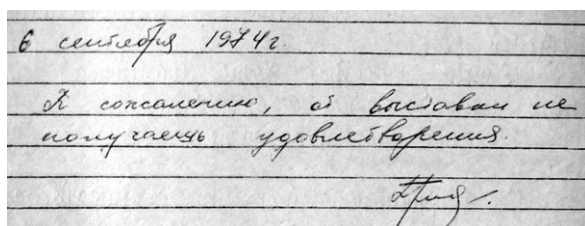 6 сентября 1974г.
К сожалению, от выставки не
получаешь удовлетворения.